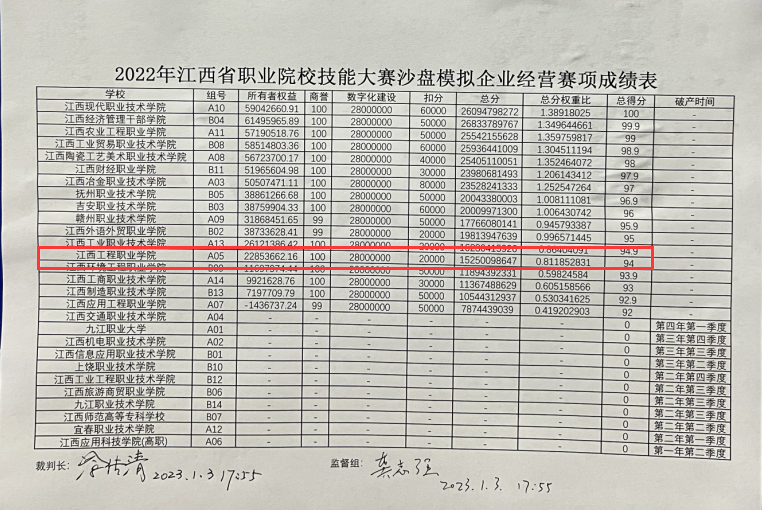 2022年江西省职业院校技能大赛沙盘模拟企业经营赛项成绩表
学校 组号 所有者权益 商誉 数字化建设 扣分 总分 总分权重比 总得分 破产时间
江西现代职业技术学院 A10 59042660.91 100 28000000 60000 26094798272 1.38918025 100 -
江西经济管理干部学院 B04 61495965.89 100 28000000 50000 26833789767 1.349644661 99.9 -
江西农业工程职业学院 A11 57190518.76 100 28000000 50000 25542155628 1.359759817 99 -
江西工业贸易职业技术学院 B08 58514803.36 100 28000000 60000 25936441009 1.304511194 98.9 -
江西陶瓷工艺美术职业技术学院 A08 56723700.17 100 28000000 40000 25405110051 1.352464072 98 -
江西财经职业学院 B11 51965604.98 100 28000000 30000 23980681493 1.206143412 97.9 -
江西冶金职业技术学院 A03 50507471.11 100 28000000 80000 23528241333 1.252547264 97 -
抚州职业技术学院 B05 38861266.68 100 28000000 50000 20043380003 1.008111081 96.9 -
吉安职业技术学院 B03 38759904.33 100 28000000 60000 20009971300 1.006430742 96 -
赣州职业技术学院 A09 31868451.65 99 28000000 50000 17766080141 0.945793387 95.9 -
江西外语外贸职业学院 B02 38733628.41 99 28000000 20000 19813947639 0.996571445 95 -
江西工业职业技术学院 A13 26121386.42 100 28000000 94.9 -
江西工程职业学院 A05 22853662.16 100 28000000 20000 15250098647 0.811852831 94 -
江西环境工程职业学院 28000000 50000 11894392331 0.59824584 93.9 -
江西工商职业技术学院 A14 9921628.76 100 28000000 40000 11367488629 0.605158566 93 -
江西制造职业技术学院 B13 7197709.79 100 28000000 50000 10544312937 0.530341625 92.9 -
江西应用工程职业学院 A07 -1436737.24 99 28000000 50000 7874439039 0.419202903 92 -
江西交通职业技术学院 A04 - - - - - - 0 第四年第一季度
九江职业大学 A01 - - - - - - 0 第三年第四季度
江西机电职业技术学院 A02 - - - - - - 0 第三年第三季度
江西信息应用职业学院 B01 - - - - - - 0 第三年第二季度
上饶职业技术学院 B10 - - - - - - 0 第二年第四季度
江西工业工程职业技术学院 B12 - - - - - - 0 第二年第三季度
江西旅游商贸职业学院 B06 - - - - - - 0 第二年第三季度
九江职业技术学院 B14 - - - - - - 0 第二年第三季度
江西师范高等专科学校 B07 - - - - - - 0 第二年第二季度
宜春职业技术学院 A12 - - - - - - 0 第二年第一季度
江西应用科技学院(高职) A06 - - - - - - 0 第一年第二季度
裁判长: 2023.1.3 17:55 监督组: 2023.1.3. 17:55